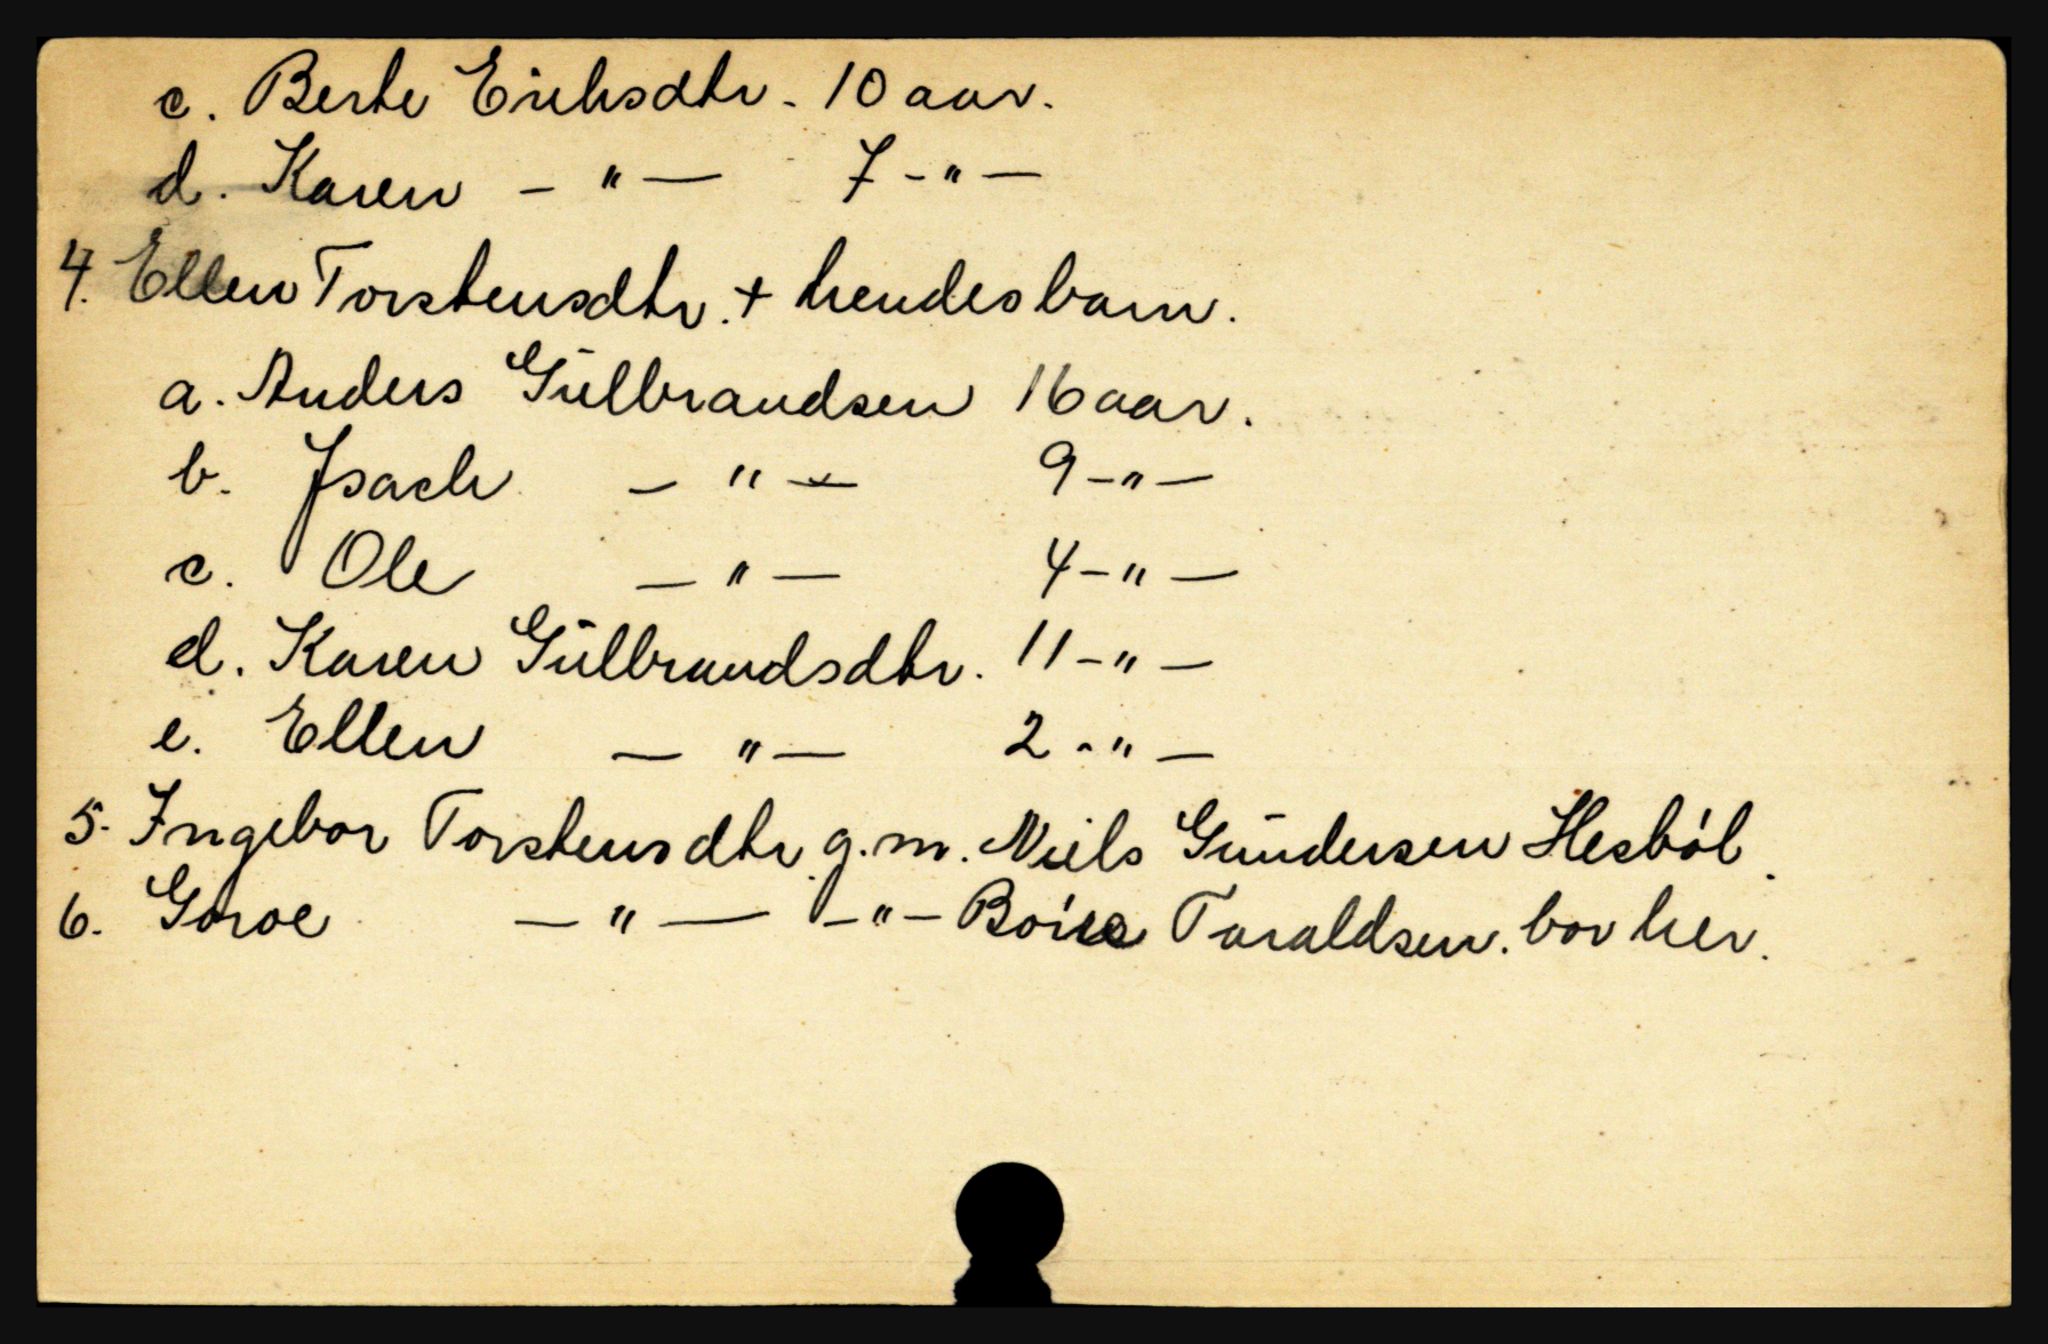 c. Berte Erichsdtr. 10 aar.
d. Karen - " - 7 - " -
4. Ellen Torstensdtr. + hendes barn.
a. Anders Gülbrandsen 16 aar.
b. Isach - " - 9 - " -
c. Ole - " - 4 - " -
d. Karen Gülbrandsdtr. 11 - " -
e. Ellen - " - 2 - " -
5. Ingebor Torstensdtr. g.m. Niels Gündersen Hesböl.
6. Goroe - " - - " - Taraldsen. bor her.